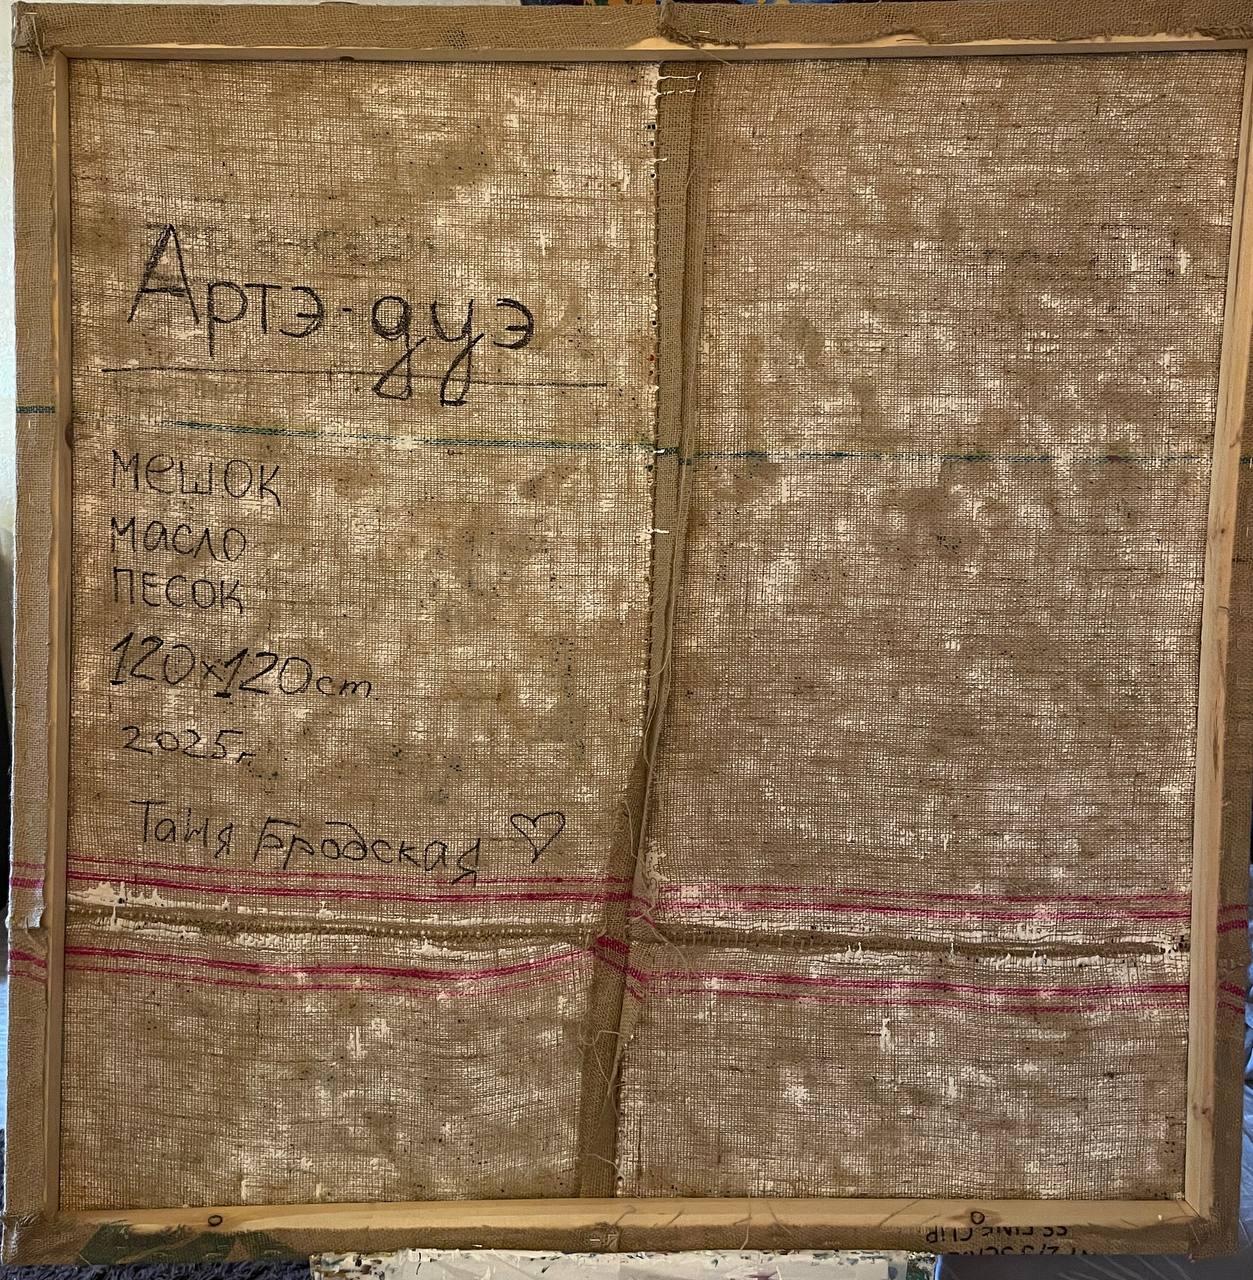 Артэ-дуэ
мешок
масло
песок
120х120cm
2025г.
Таня Бродская
SS FINE CLIP